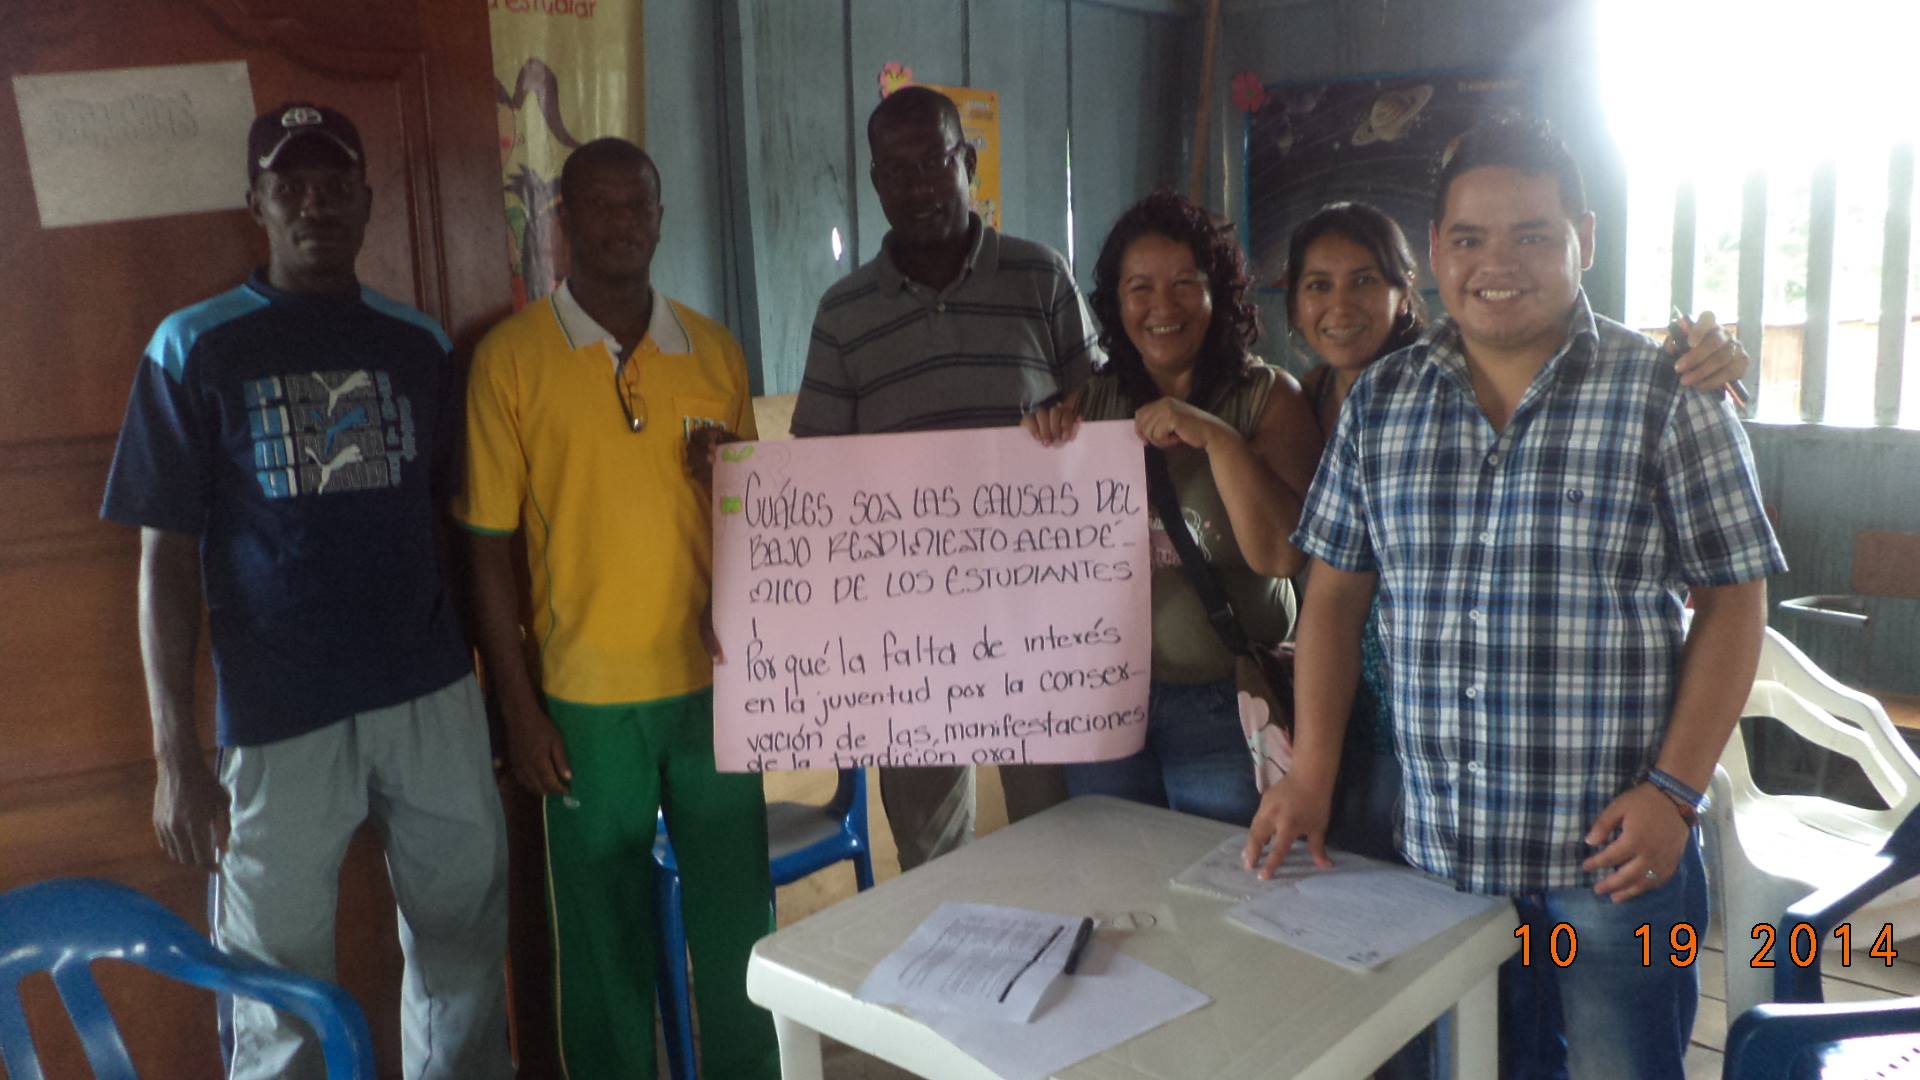 a estudiar
CUÁLES SON LAS CAUSAS DEL
BAJO RENDIMIENTO ACADÉ-
MICO DE LOS ESTUDIANTES
Por qué la falta de interés
en la juventud por la conser-
vación de las, manifestaciones
de la tradición oral.
10 19 2014